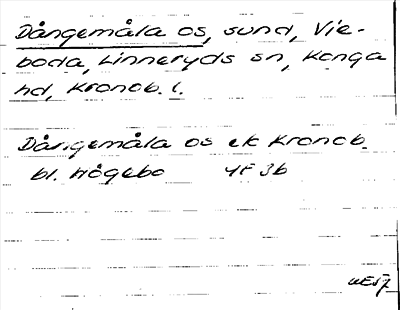 Dångemåla os, sund, Vie-
boda, Linneryds sn, Konga
hd, Kronob. l.
Dångemåla os ek Kronob.
bl. Högebo 4F 3b